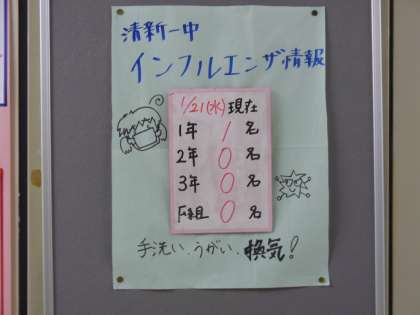 清新一中
インフルエンザ情報
1/21(水)現在
1年 1名
2年 0名
3年 0名
F組 0名
手洗い、うがい、換気!